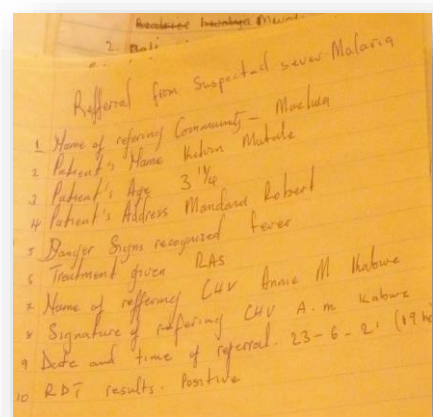 2.
Refferal from Suspected sever Malaria
1 Name of refering Community - Maelwa
2 Patient's Name Kelvin Mutale
3 Patient's Age 3 11/4
4 Patient's Address Mandard Robert
5 Danger Signs recognized fever
6 Treatment given RAS
7 Name of reffering CHV Annie M Kabwe
8 Signature of refering CHV A.m Kabwe
9 Date and time of referral. 23-6-21 (19
10 RDT results. Positive